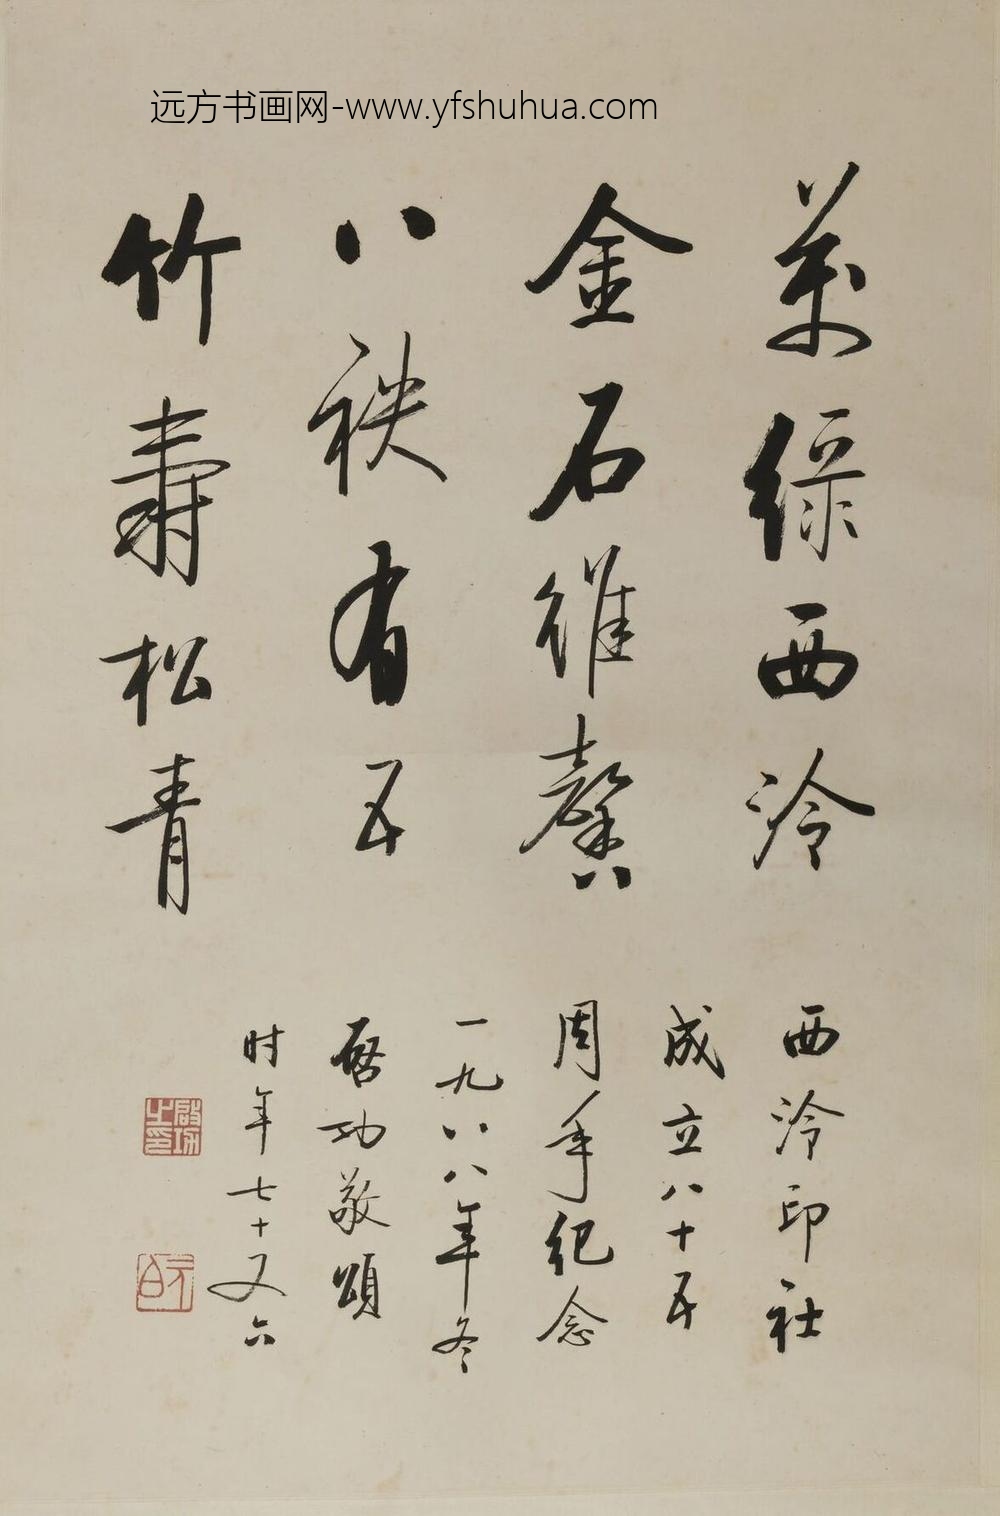 远方书画网-www.yfshuhua.com
万绿西泠
金石维馨
八秩有五
竹寿松青
西泠印社
成立八十五
周年纪念
一九八八年冬
启功敬颂
时年七十又六
启功之印
元白